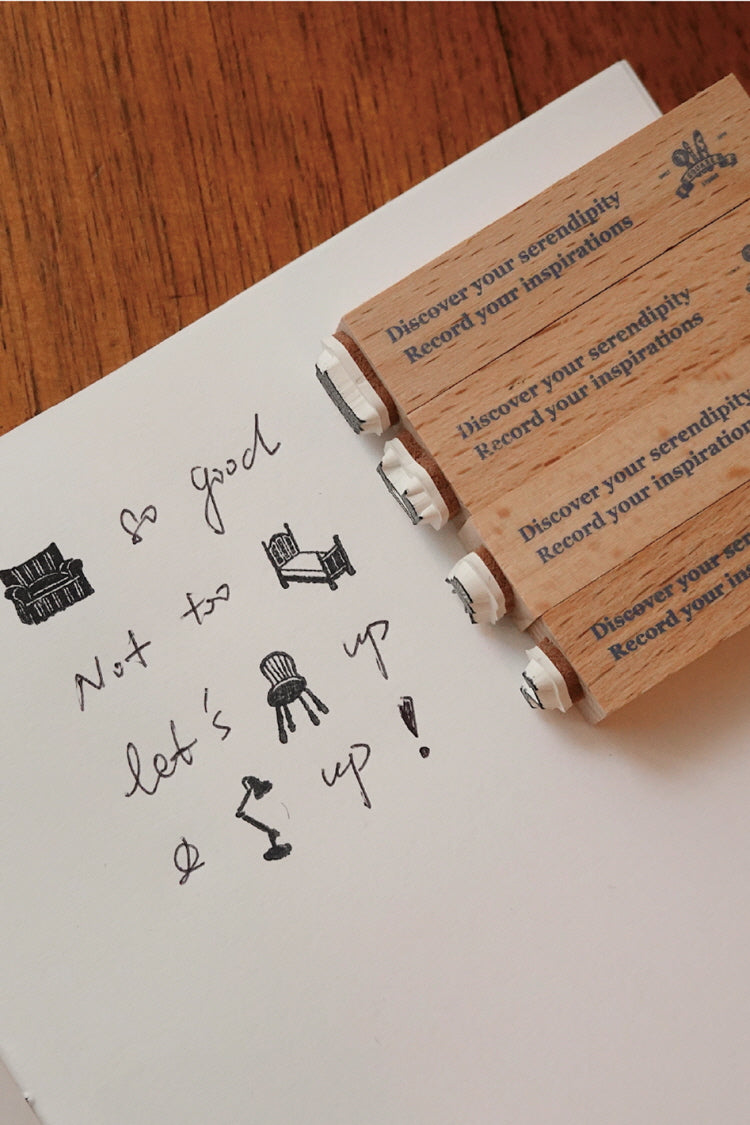 so good
Not too
let's up
& up!
Discover your serendipity
Record your inspirations
Discover your serendipity
Record your inspirations
Discover your serendipity
Record your inspiration
Discover your ser
Record your ins